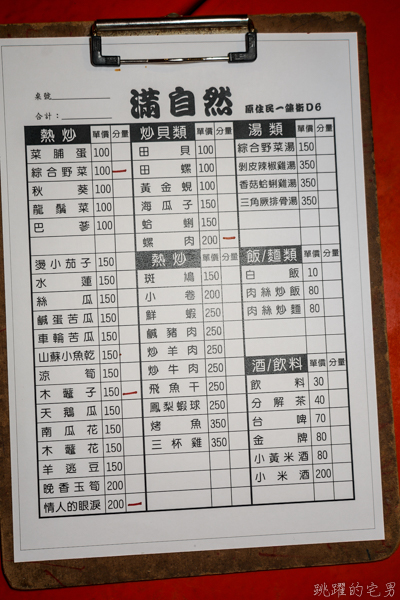 滿自然 原住民一條街D6
桌號
合計：
熱炒 單價 分量
菜脯蛋 100
綜合野菜 100
秋葵 100
龍鬚菜 100
巴蔘 100
燙小茄子 150
水蓮 150
絲瓜 150
鹹蛋苦瓜 150
車輪苦瓜 150
山蘇小魚乾 150
涼筍 150
木虌子 150
天鵝瓜 150
南瓜花 150
木虌花 150
羊逃豆 150
晚香玉筍 200
情人的眼淚 200
炒貝類 單價 分量
田貝 100
田螺 100
黃金蜆 100
海瓜子 150
蛤蜊 150
螺肉 200
熱炒 單價 分量
斑鳩 150
小卷 200
鮮蝦 250
鹹豬肉 250
炒羊肉 250
炒牛肉 250
飛魚干 250
鳳梨蝦球 250
烤魚 350
三杯雞 350
湯類 單價 分量
綜合野菜湯 150
剝皮辣椒雞湯 350
香菇蛤蜊雞湯 350
三角蕨排骨湯 350
飯/麵類 單價 分量
白飯 10
肉絲炒飯 80
肉絲炒麵 80
酒/飲料 單價 分量
飲料 30
分解茶 40
台啤 70
金牌 80
小黃米酒 80
小米酒 200
跳躍的宅男